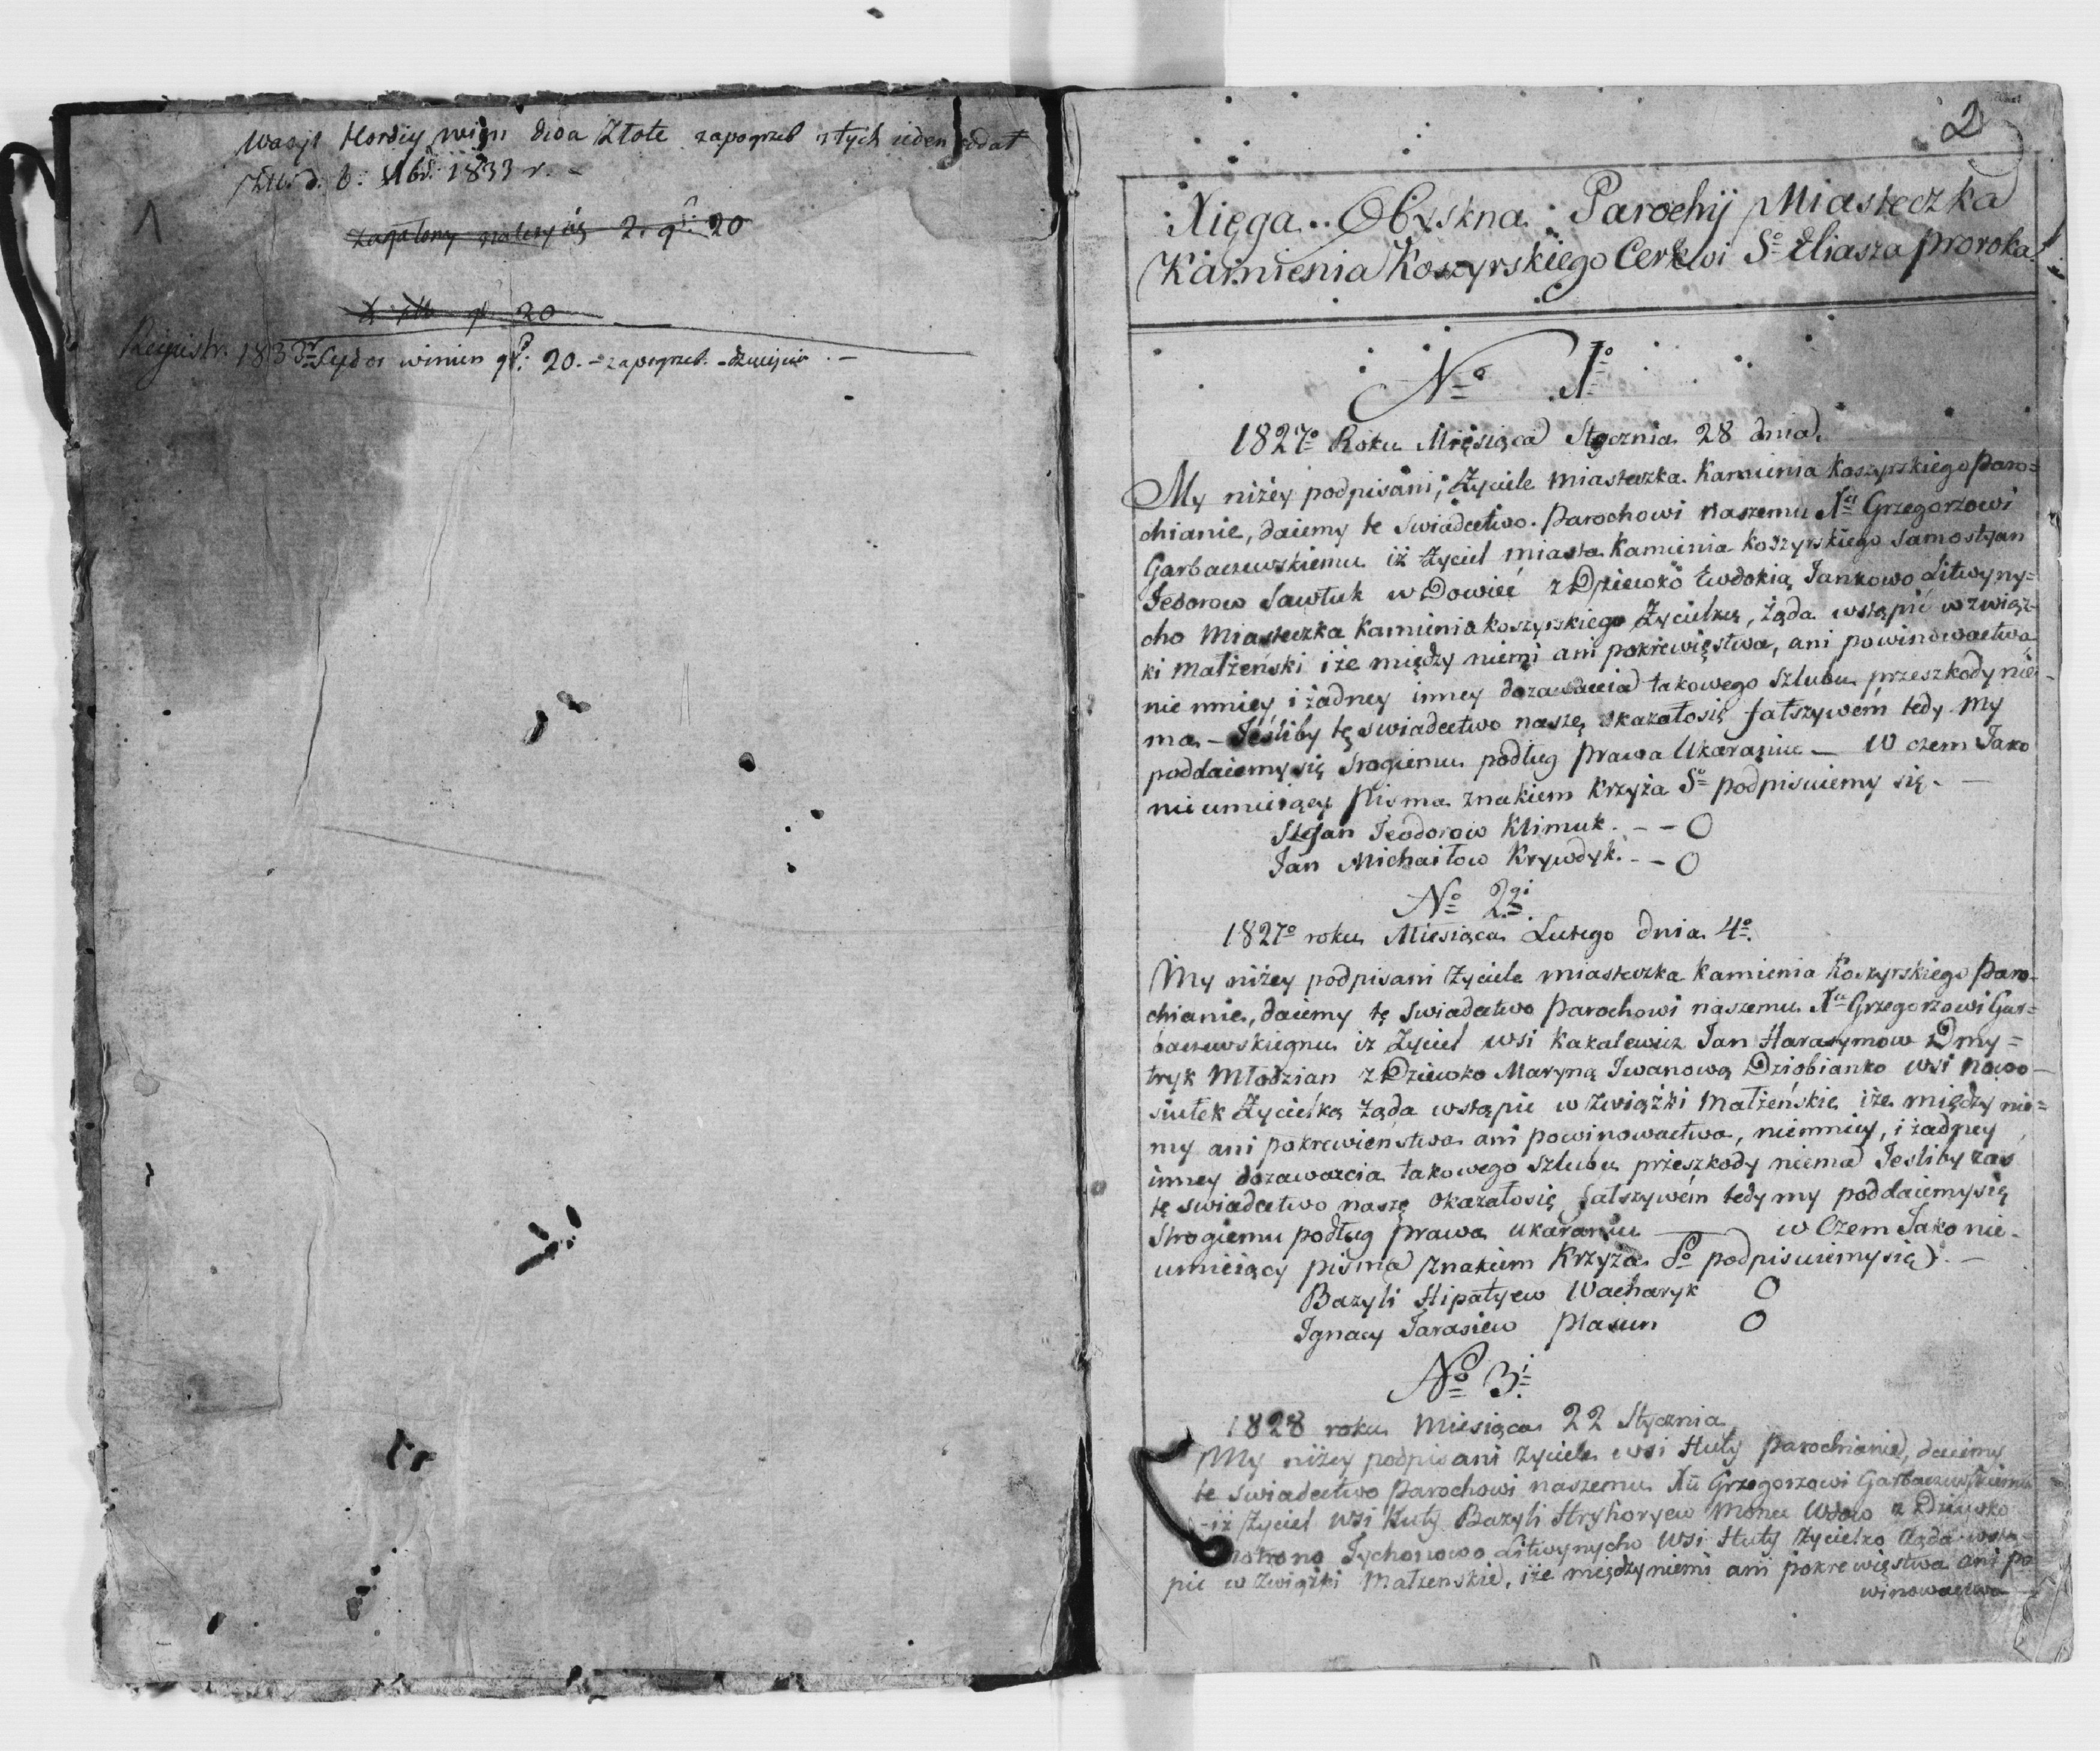 Wasyl Hordiy winn dwa Złote zapogrzeb ztych ieden oddał
d. 6: 1833 r. –
2. gr: 20
gr. 20
Regestr. 1833 r. Sydor winien gr: 20. – zapogrzeb. –
2
Xięga Obyskna Parochij Miasteczka
Kamienia Koszyrskiego Cerkwi So Eliasza proroka
No 1o
1827o Roku Miesiąca Stycznia 28 dnia
My niżey podpisani, Życiele miasteczka Kamienia Koszyrskiego Paro=
chianie, daiemy te swiadectwo Parochowi naszemu Xu Grzegorzowi
Garbaczewskiemu iż życiel miasta Kamienia Koszyrskiego Samostyan
Teodorow Sawluk wDowiec zDziewko Ewdokią Jankowo Litwyny=
cho Miasteczka Kamienia koszyrskiego Życielką, żąda wstąpić w związ=
ki małżeński iże między niemi ani pokrewięstwa, ani powinowactwa
nie mniey i żadney inney dozawarcia takowego szlubu przeszkody nie
ma. – Jeśliby tę swiadectwo naszę okazałosię fałszywém tedy my
poddaiemy się Srogiemu podług prawa Ukaraniu – W czem Jako
nieumieiący Pisma znakiem Krzyża So podpisuiemy się. –
Stefan Teodorow Klimuk. – – O
Jan Michaiłow Krywdyk. – – O
No 2gi
1827o roku Miesiąca Lutego dnia 4o.
My niżey podpisani życiele miasteczka Kamienia Koszyrskiego Paro=
chianie, daiemy tę swiadectwo Parochowi naszemu Xu Grzegorzowi Gar=
baczewskiegnu iz Życiel wsi Kakalewicz Jan Harasymow Dmy=
tryk Młodzian z Dziewko Maryną Iwanową Dziobianko wsi Nowo-
siułek Życielką żąda wstąpic w związki Małżeńskie iże między nie=
my ani pokrewieństwa ani powinowactwa, niemniey, i żadney
inney dozawarcia takowego szlubu przeszkody niema Jesliby zas
tę swiadectwo naszę okazałosię fałszywém tedy my poddaiemysię
Strogiemu podług prawa ukaraniu —— w Czem Jako nie-
umieiący pisma znakiem Krzyża So podpisuiemysię). –
Bazyli Hipatyew Wacharyk O
Ignacy Tarasiew Plasun O
No 3i
1828 roku Miesiąca 22 Stycznia
My niżey podpisani życiele wsi Huty Parochianie, daiemy
te swiadectwo Parochowi naszemu Xu Grzegorzowi Garbaczewskiemu
iż życiel wsi Huty Bazyli Hryhoryew z Dziewko
Tychonowo Litwynycho wsi Huty życielko żąda wstą=
pic w związki Małzenskie, iże między niemi ani pokrewięstwa ani po
winowactwa